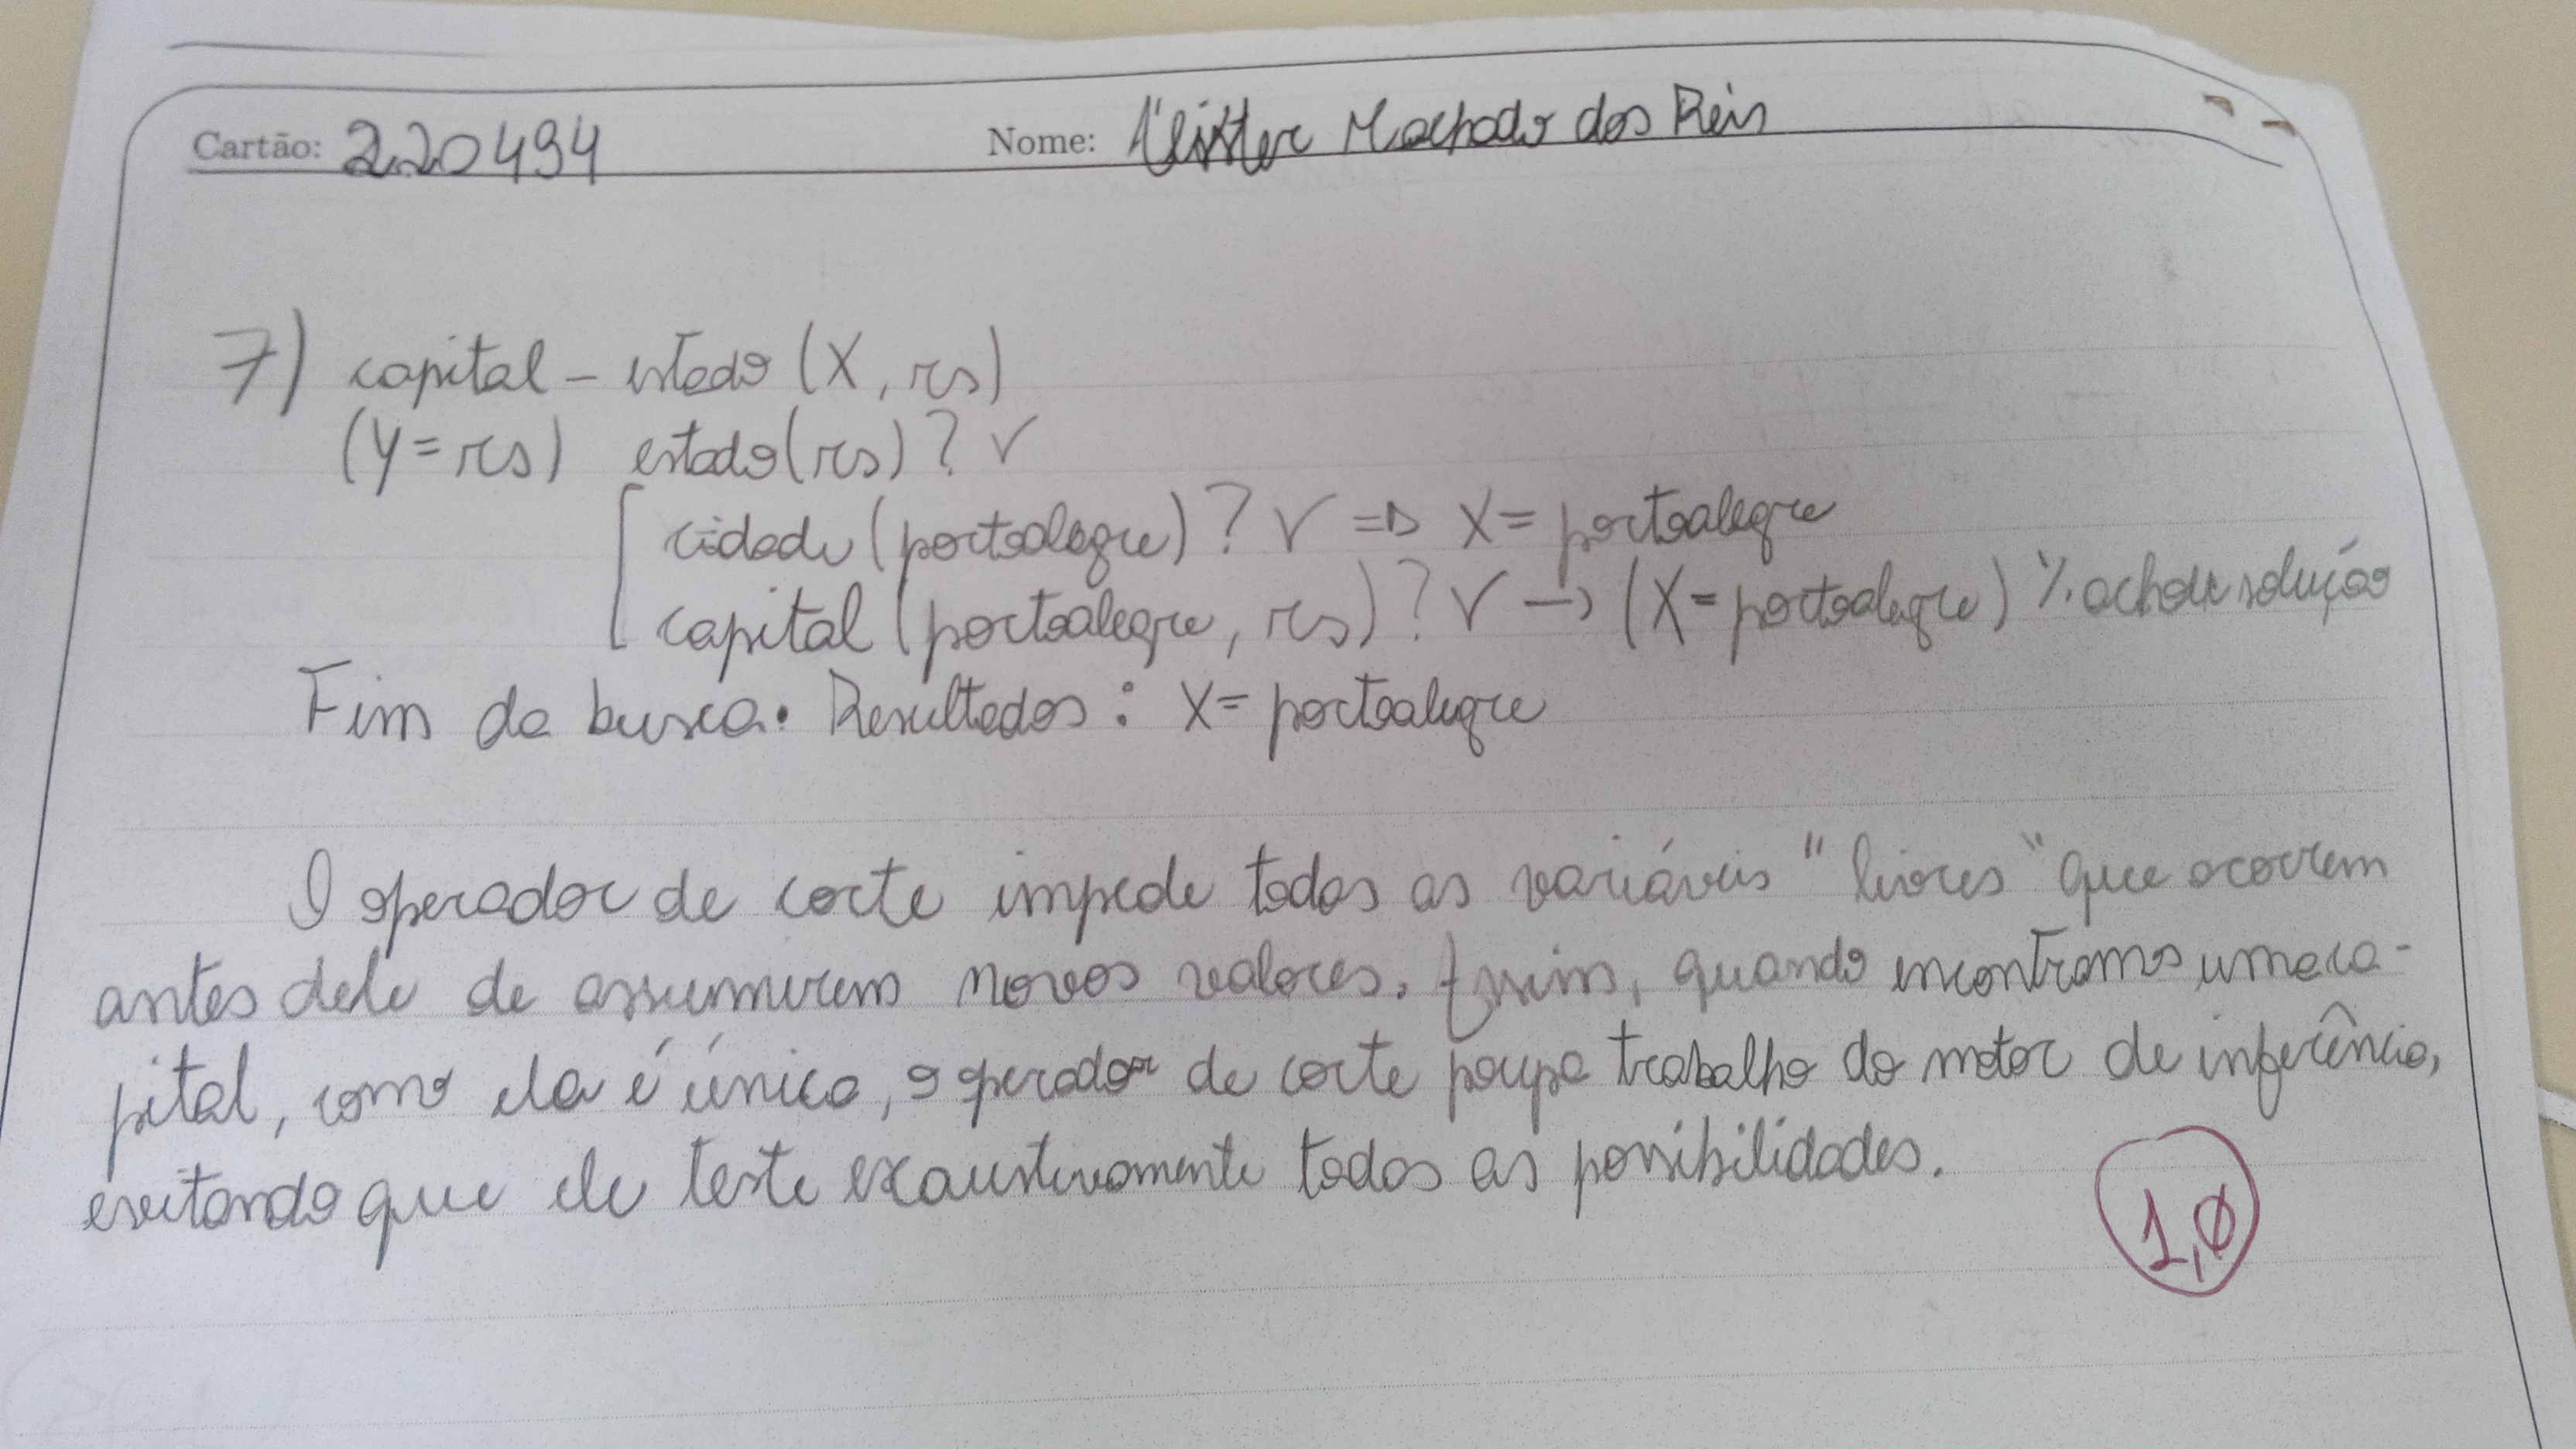 Cartão: 220494 Nome: Machado dos Reis
7) capital-estado (X, rs)
(Y=rs) estado(rs)? ✓
cidade(portoalegre)? ✓ => X= portoalegre
capital(portoalegre, rs)? ✓ -> (X=portoalegre) % achou solução
Fim da busca. Resultados: X= portoalegre
O operador de corte impede todas as variáveis "livres" que ocorrem
antes dele de assumirem novos valores. Assim, quando encontramos uma ca-
pital, como ela é única, o operador de corte poupa trabalho do motor de inferência,
evitando que ele teste exaustivamente todas as possibilidades.
1,0